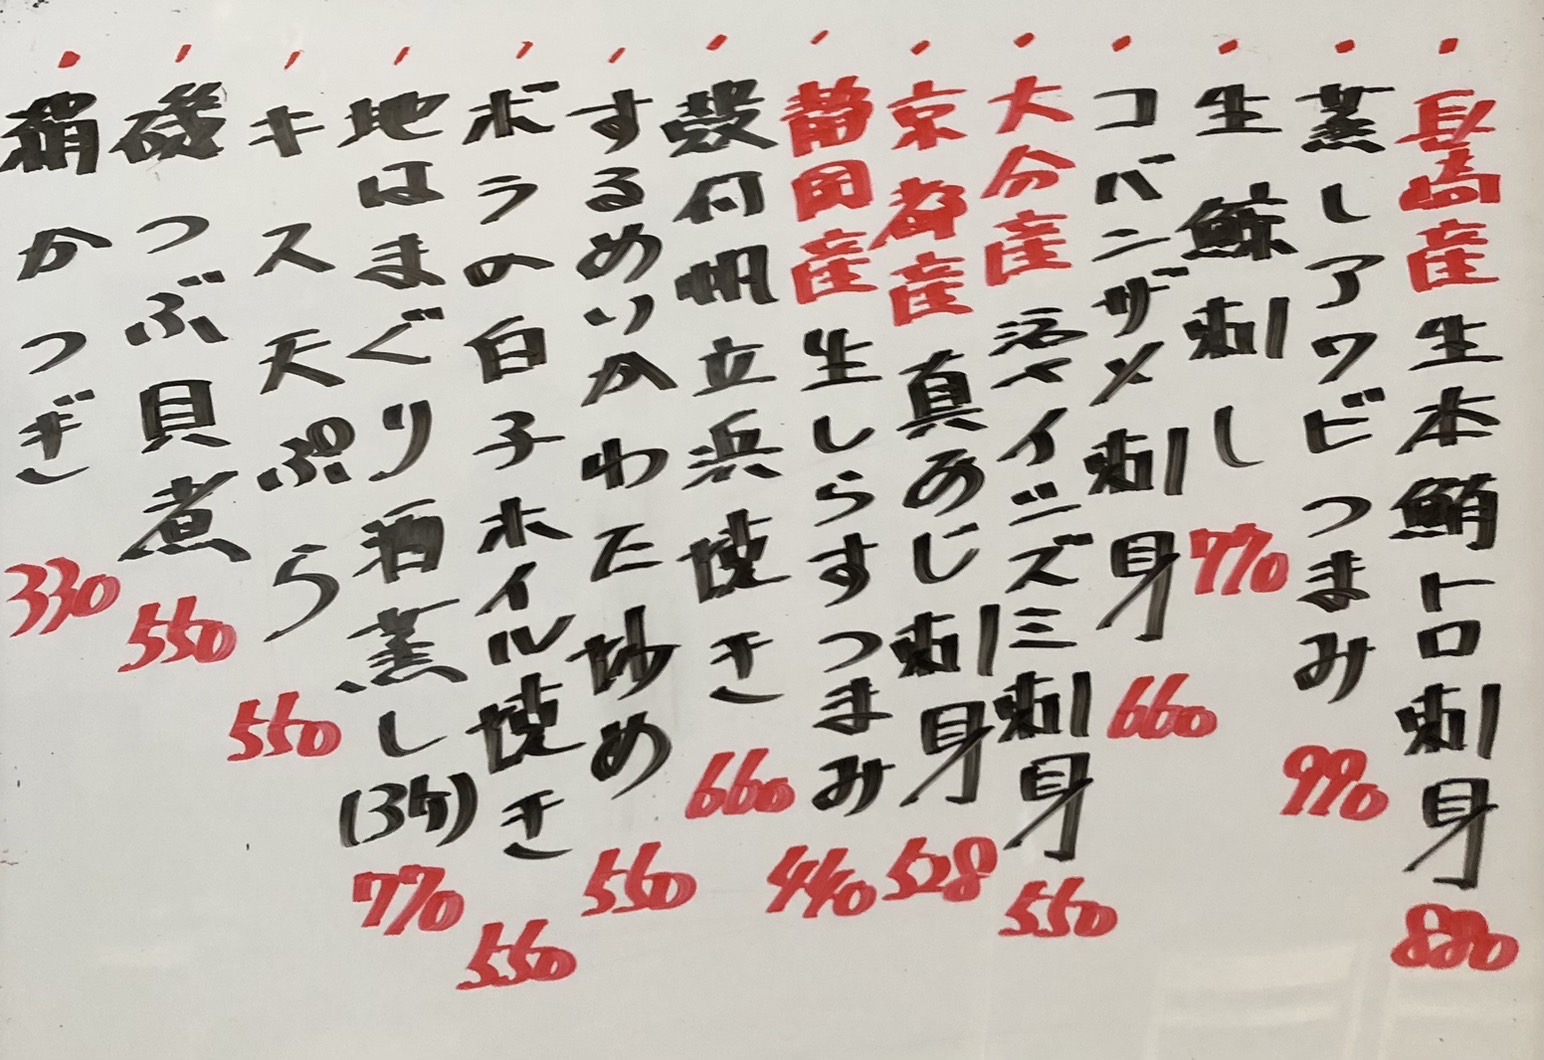 ・長崎産生本鮪トロ刺身 880
・蒸しアワビつまみ 990
・生鯨刺し 770
・コバンザメ刺身 660
・大分産活〆イシズミ刺身 550
・京都産真あじ刺身 528
・静岡産生しらすつまみ 440
・殻付帆立浜焼き 660
・するめいかわた炒め 550
・ボラの白子ホイル焼き 550
・地はまぐり酒蒸し(3ケ) 770
・キス天ぷら 550
・磯つぶ貝煮 550
・稍かつぎ 330